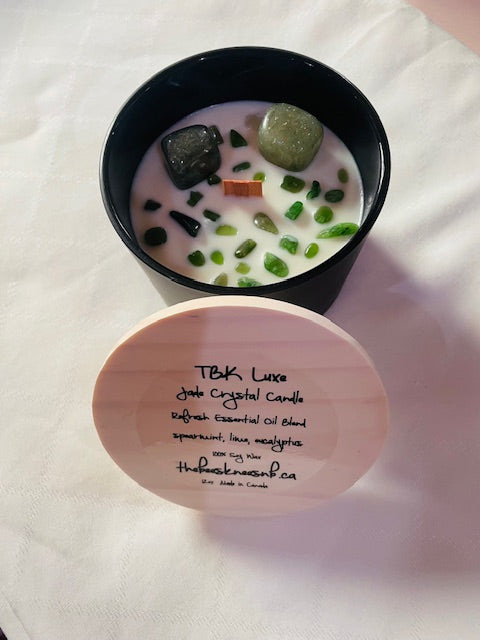 TBK Luxe
Jade Crystal Candle
Refresh Essential Oil Blend
spearmint, lime, eucalyptus
100% Soy Wax
thebeeskneesnb.ca
12oz Made in Canada